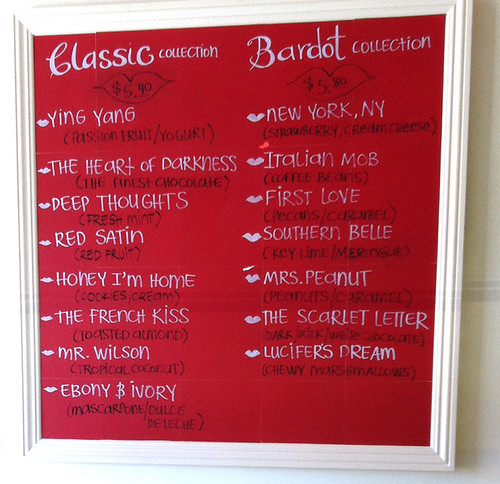 Classic COLLECTION
$5.40
YING YANG
(PASSION FRUIT/YOGURT)
THE HEART OF DARKNESS
(THE FINEST CHOCOLATE)
DEEP THOUGHTS
(FRESH MINT)
RED SATIN
(RED FRUIT)
HONEY I'M HOME
(COOKIES/CREAM)
THE FRENCH KISS
(TOASTED ALMOND)
MR. WILSON
(TROPICAL COCONUT)
EBONY $ IVORY
(MASCARPONE/DULCE
DE LECHE)
Bardot COLLECTION
$5.80
NEW YORK, NY
(STRAWBERRY/CREAM CHEESE)
ITALIAN MOB
(COFFEE BEANS)
FIRST LOVE
(PECANS/CARAMEL)
SOUTHERN BELLE
(KEY LIME/MERINGUE)
MRS. PEANUT
(PEANUTS/CARAMEL)
THE SCARLET LETTER
DARK/MILK/WHITE CHOCOLATE)
LUCIFER'S DREAM
(CHEWY MARSHMALLOWS)